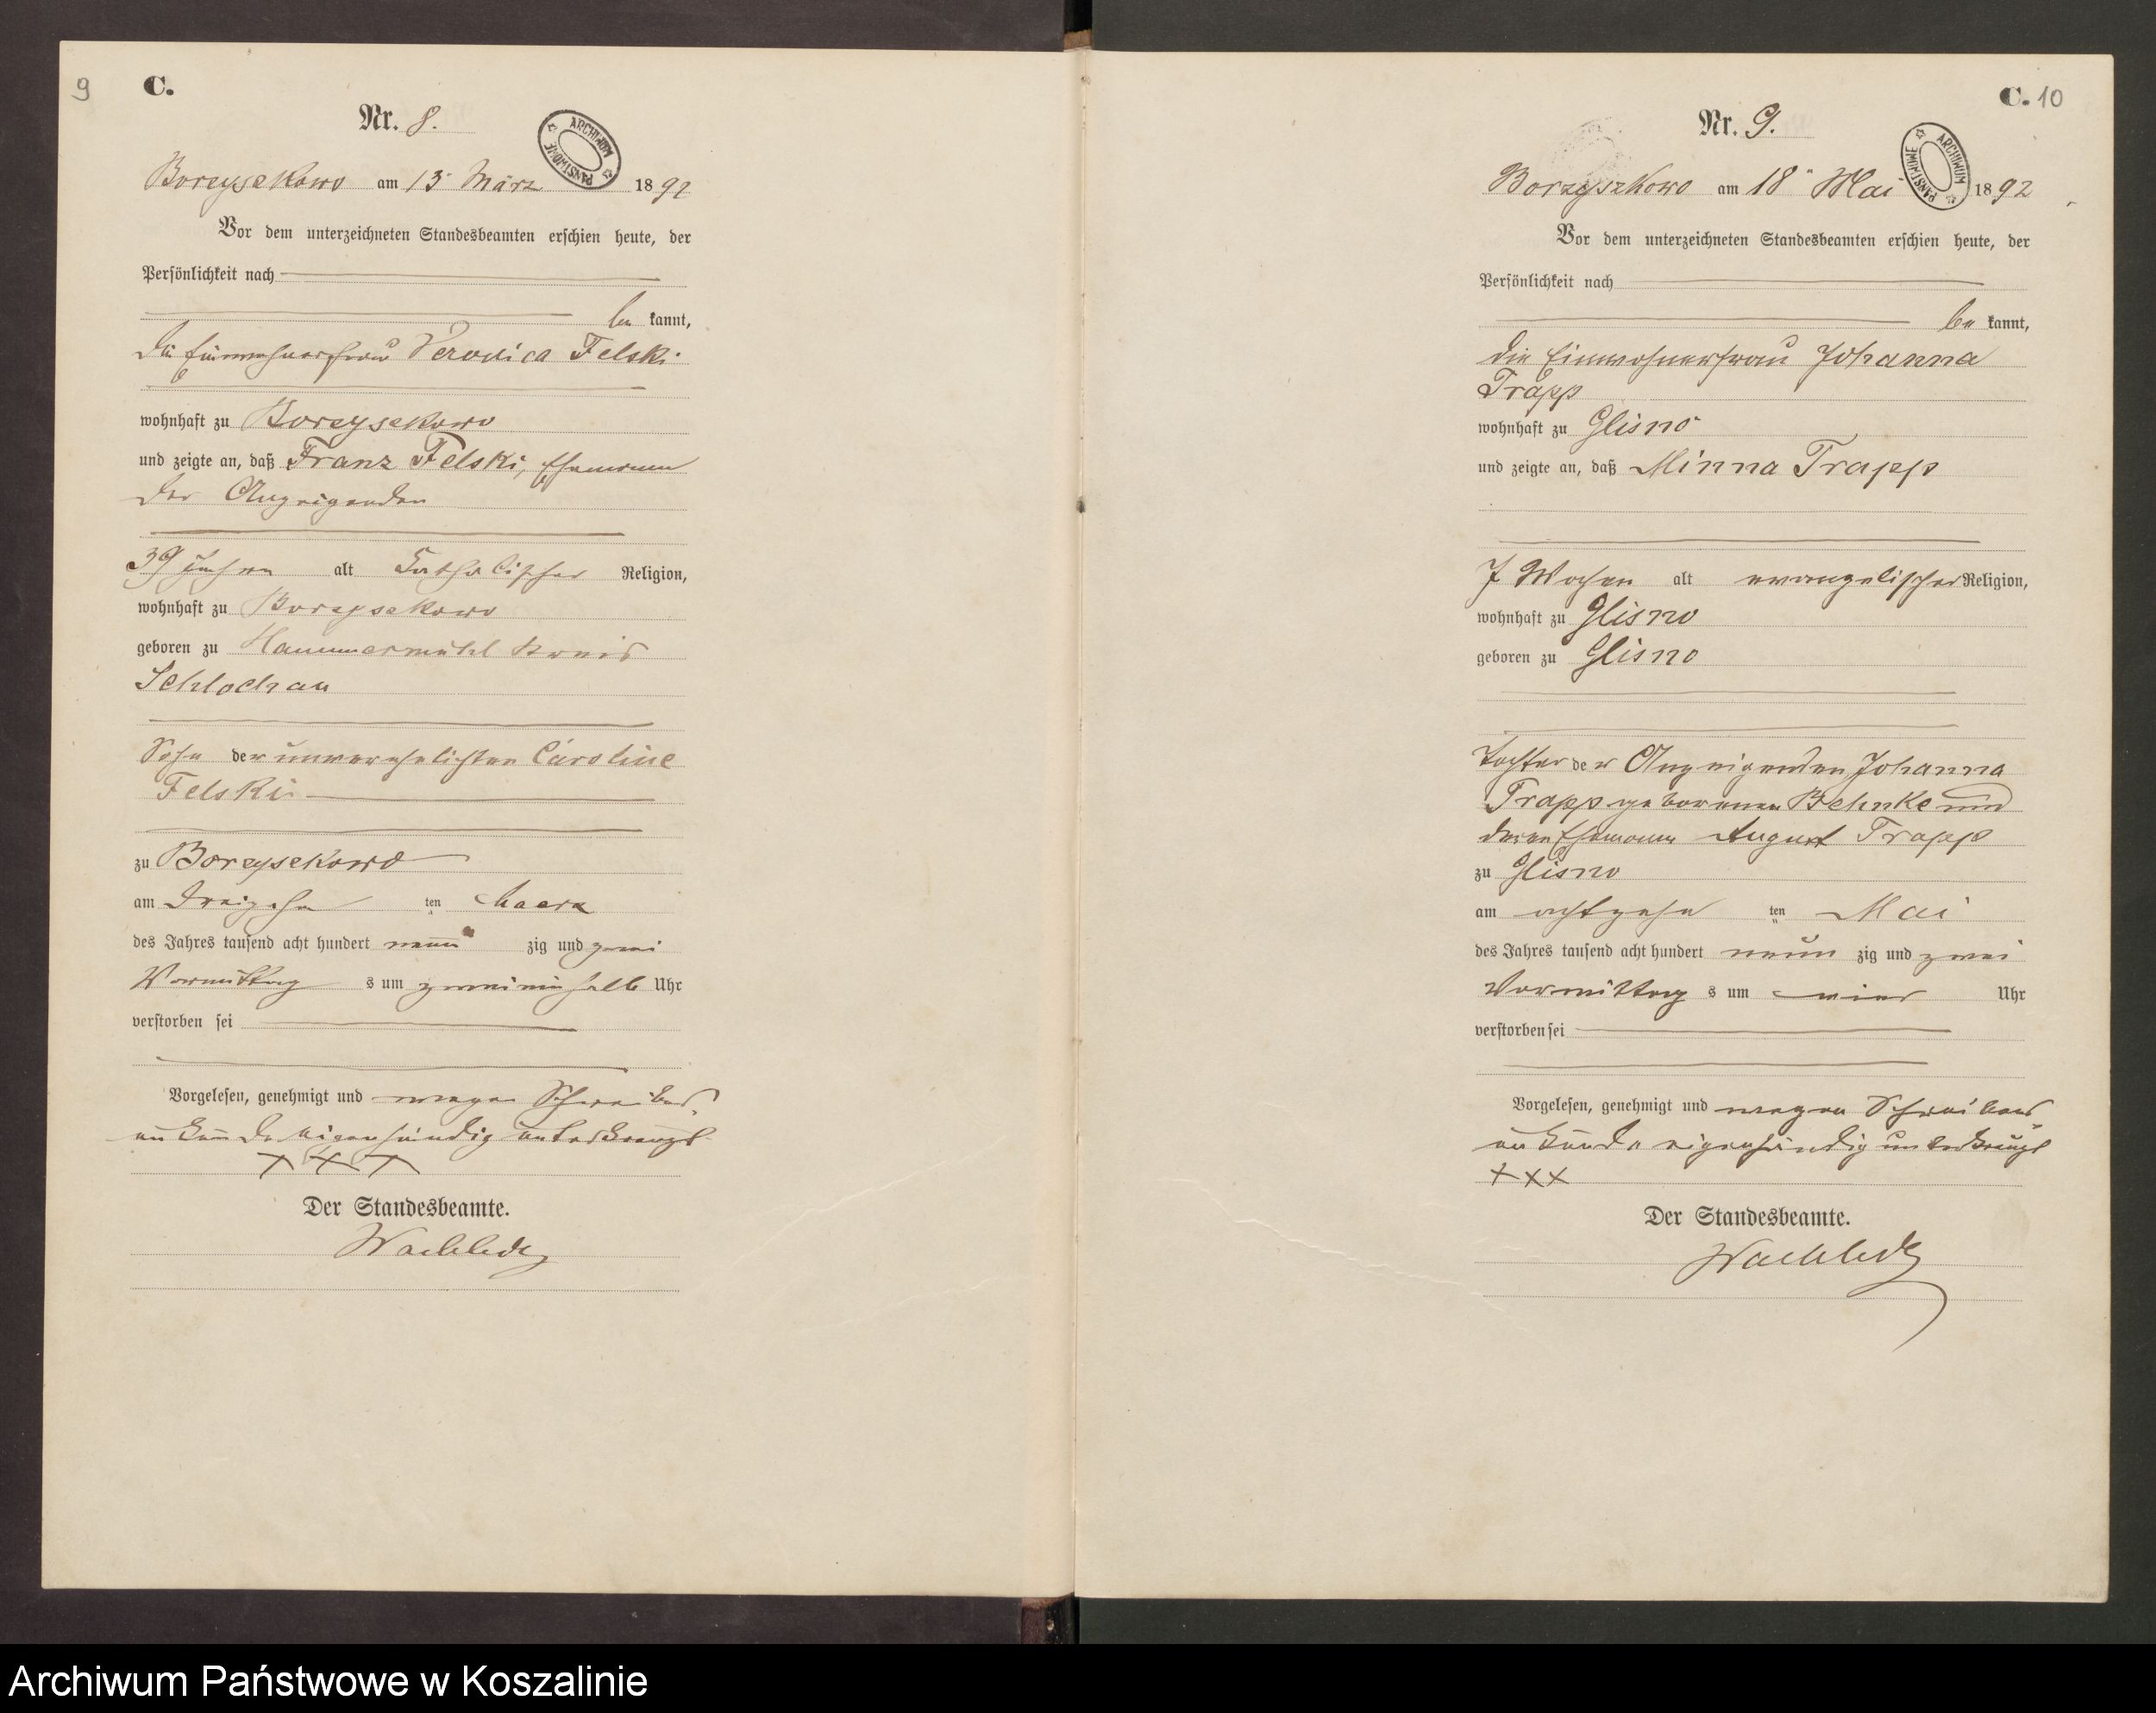 9
C.
Nr. 8.
ARCHIWUM PAŃSTWOWE
Borzyszkowo am 13" März 1892
Vor dem unterzeichneten Standesbeamten erschien heute, der
Persönlichkeit nach
be kannt,
die Einwohnerfrau Veronica Felski
wohnhaft zu Borzyszkowo
und zeigte an, daß Franz Felski, Ehemann
der Anzeigenden
39 Jahren alt katholischer Religion,
wohnhaft zu Borzyszkowo
geboren zu Hammermühl Kreis
Schlochau
Sohn der unverehelichten Caroline
Felski
zu Borzyszkowo
am dreizehn ten Maerz
des Jahres tausend acht hundert neun zig und zwei
Vormittag s um zweieinhalb Uhr
verstorben sei
Vorgelesen, genehmigt und wegen Schreibens
unkunde eigenhändig unterkreuzt
+++
Der Standesbeamte.
C. 10
Nr. 9.
ARCHIWUM PAŃSTWOWE
Borzyszkowo am 18" Mai 1892
Vor dem unterzeichneten Standesbeamten erschien heute, der
Persönlichkeit nach
be kannt,
die Einwohnerfrau Johanna
Trapp
wohnhaft zu Glisno
und zeigte an, daß Minna Trapp
7 Wochen alt evangelischer Religion,
wohnhaft zu Glisno
geboren zu Glisno
Tochter der Anzeigenden Johanna
Trapp geborenen Behnke und
deren Ehemann August Trapp
zu Glisno
am achtzehn ten Mai
des Jahres tausend acht hundert neun zig und zwei
Vormittag s um vier Uhr
verstorben sei
Vorgelesen, genehmigt und wegen Schreibens
unkunde eigenhändig unterkreuzt
+++
Der Standesbeamte.
Archiwum Państwowe w Koszalinie